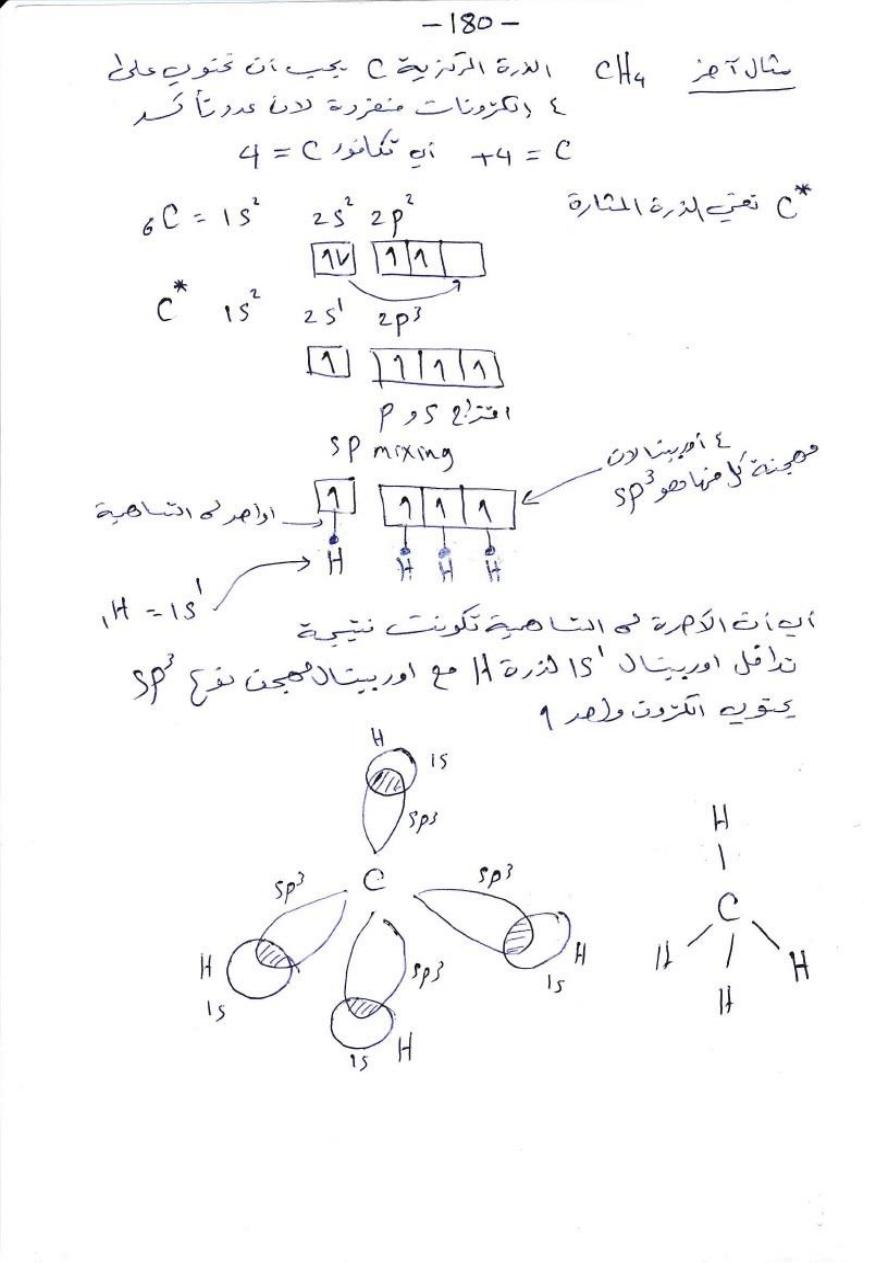 - 180 -
مثال آخر CH4 الذرة المركزية C يجب أن تحتوي على
٤ الكترونات منفردة لان عدد تأكسد
C = +4 أي تكافؤ C = 4
C* تعني الذرة المثارة
6C = 1s² 2s² 2p²
1↿⇂ 1 1
C* 1s² 2s¹ 2p³
1 1 1 1
امتزاج s و p
sp mixing
٤ أوربيتالان
مهجنة كل منها هو sp³
1 1 1 1
اواصر في التساهمية
H H H H
1H = 1s¹
أي أن الآصرة في التساهمية تكونت نتيجة
تداخل اوربيتال 1s¹ لذرة H مع اوربيتال مهجن نوع sp³
يحتوي الكترون واحد 1
H 1s
sp3
sp³ C sp³
H 1s
sp3
H 1s
1s H
H
C
H H H